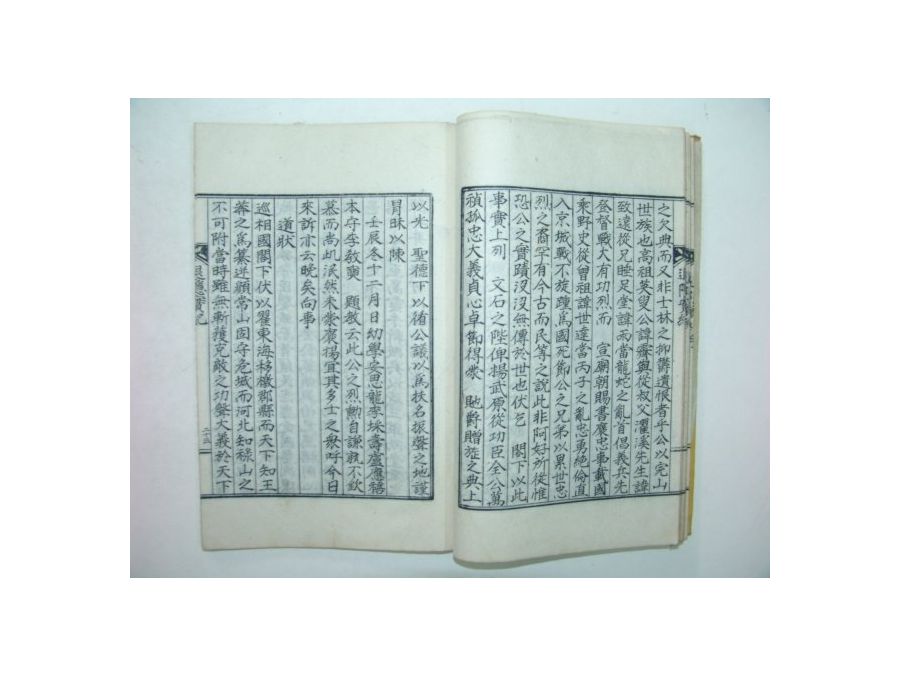 之久典而又非士林之抑鬱遺恨者乎公以完山
世族也高祖英叟公諱 與從叔父濯溪先生諱
致遠從兄睦足堂諱 而當龍蛇之亂首倡義兵先
登督戰大有功烈而 宣廟朝賜書褒忠事載國
乘野史從曾祖諱世達當丙子之亂忠勇絶倫直
入京城戰不旋踵爲國死節公之兄弟以累世忠
烈之裔罕有今古而民等之說此非阿好所從惟
恐公之實蹟沒沒無傳於世也伏乞 閤下以此
事實上列 文石之陛俾揚武原從功臣全公萬
禎孤忠大義貞心卓節得蒙 貤爵贈旌之典上
以先 聖德下以侑公議以爲扶名振聲之地謹
冐昧以陳
壬辰冬十二月日幼學安思龍李埰壽盧應禧
本守李敎奭 題敎云此公之烈勲自謙孰不欽
慕而尚此泯然未蒙褒揚宜其多士之衆呼今日
來訴亦云晚矣向事
道狀
巡相國閤下伏以翟東海移檄郡縣而天下知王
莽之爲簒逆顔常山固守危城而河北知祿山之
不可附當時雖無斬獲克敵之功聲大義於天下
實紀
二十三